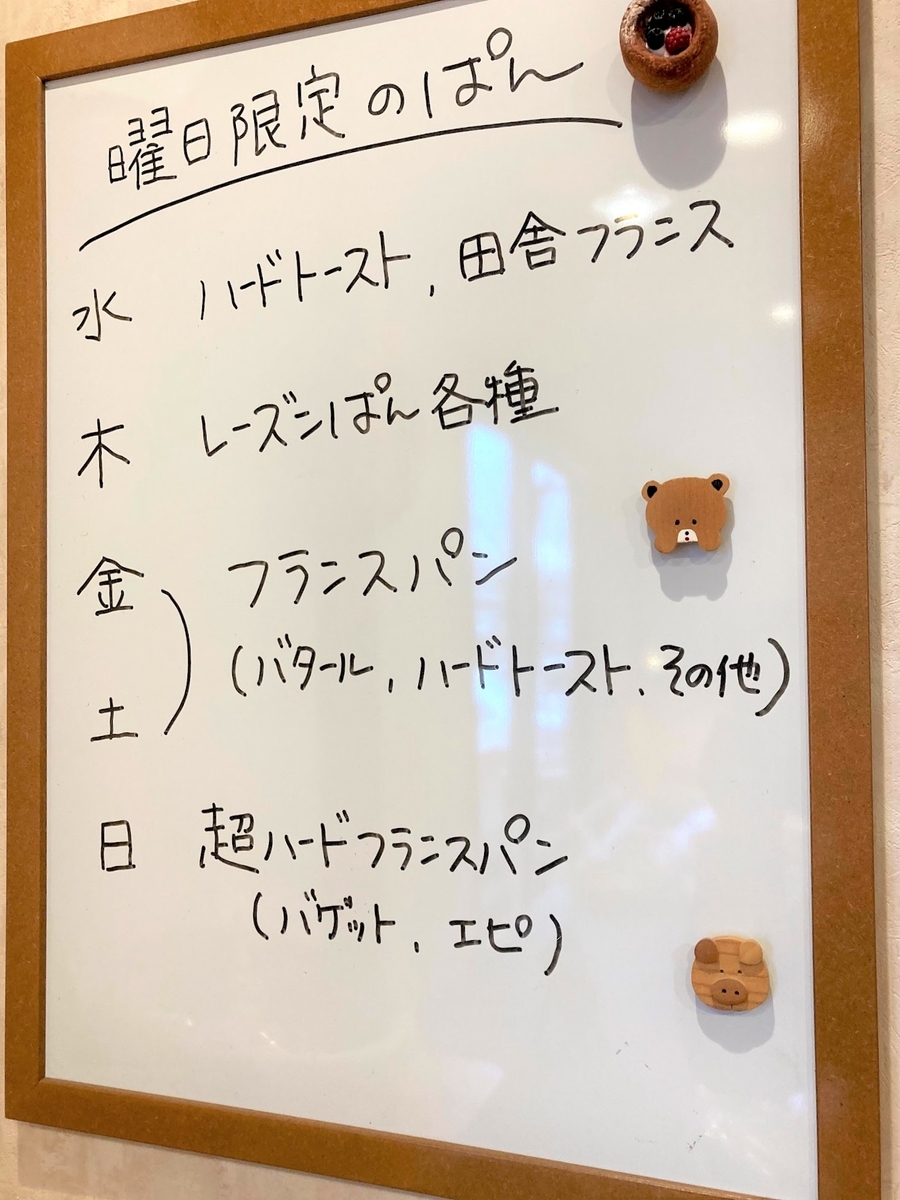 曜日限定のぱん
水 ハードトースト, 田舎フランス
木 レーズンぱん各種
金 フランスパン
土 (バタール, ハードトースト, その他)
日 超ハードフランスパン
(バゲット, エピ)